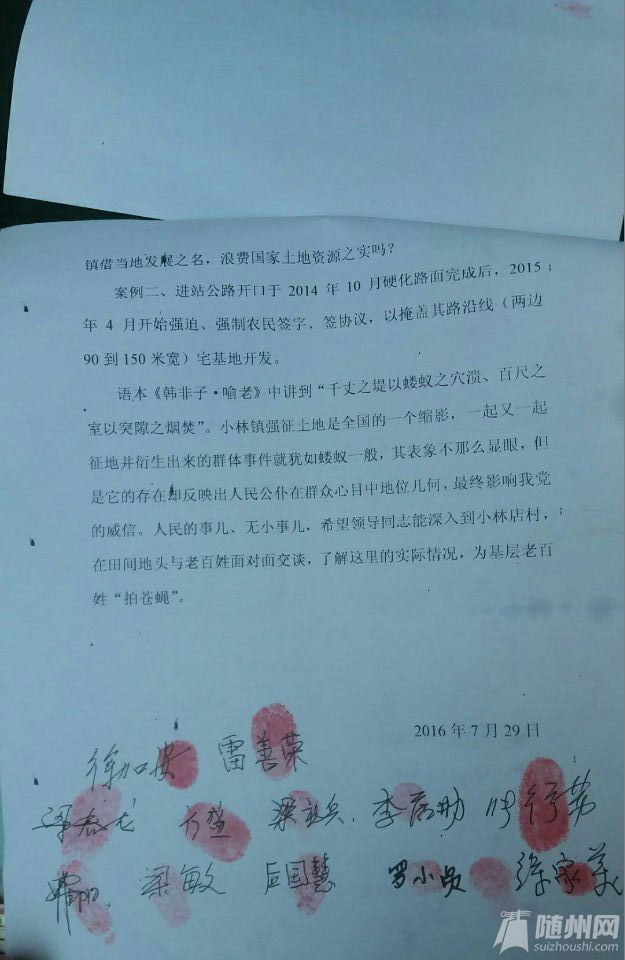 镇借当地发展之名，浪费国家土地资源之实吗？
案例二、进站公路开口于 2014 年 10 月硬化路面完成后，2015
年 4 月开始强迫、强制农民签字、签协议，以掩盖其路沿线（两边
90 到 150 米宽）宅基地开发。
语本《韩非子·喻老》中讲到“千丈之堤以蝼蚁之穴溃、百尺之
室以突隙之烟焚”。小林镇强征土地是全国的一个缩影，一起又一起
征地并衍生出来的群体事件就犹如蝼蚁一般，其表象不那么显眼，但
是它的存在却反映出人民公仆在群众心目中地位几何，最终影响我党
的威信。人民的事儿、无小事儿，希望领导同志能深入到小林店村，
在田间地头与老百姓面对面交谈，了解这里的实际情况，为基层老百
姓“拍苍蝇”。
2016 年 7 月 29 日
徐加安 雷善荣
梁春龙
梁敏 罗小员 徐家英
随州网
suizhoushi.com